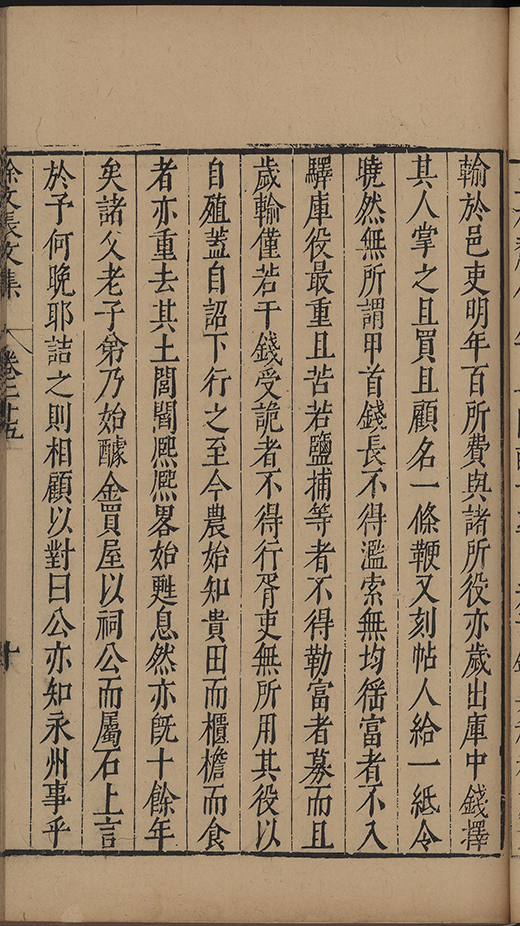 輸於邑吏明年百所費與諸所役亦歲出庫中錢擇
其人掌之且買且顧名一條鞭又刻帖人給一紙令
曉然無所謂甲首錢長不得濫索無均徭富者不入
驛庫役最重且苦若鹽捕等者不得勒富者募而且
歲輸僅若干錢受詭者不得行胥吏無所用其役以
自殖蓋自詔下行之至今農始知貴田而櫃檐而食
者亦重去其土閭閻熈熈畧始甦息然亦旣十餘年
矣諸父老子弟乃始醵金買屋以祠公而屬石上言
於予何晚耶詰之則相顧以對曰公亦知永州事乎
徐文長文集
卷二十五
十